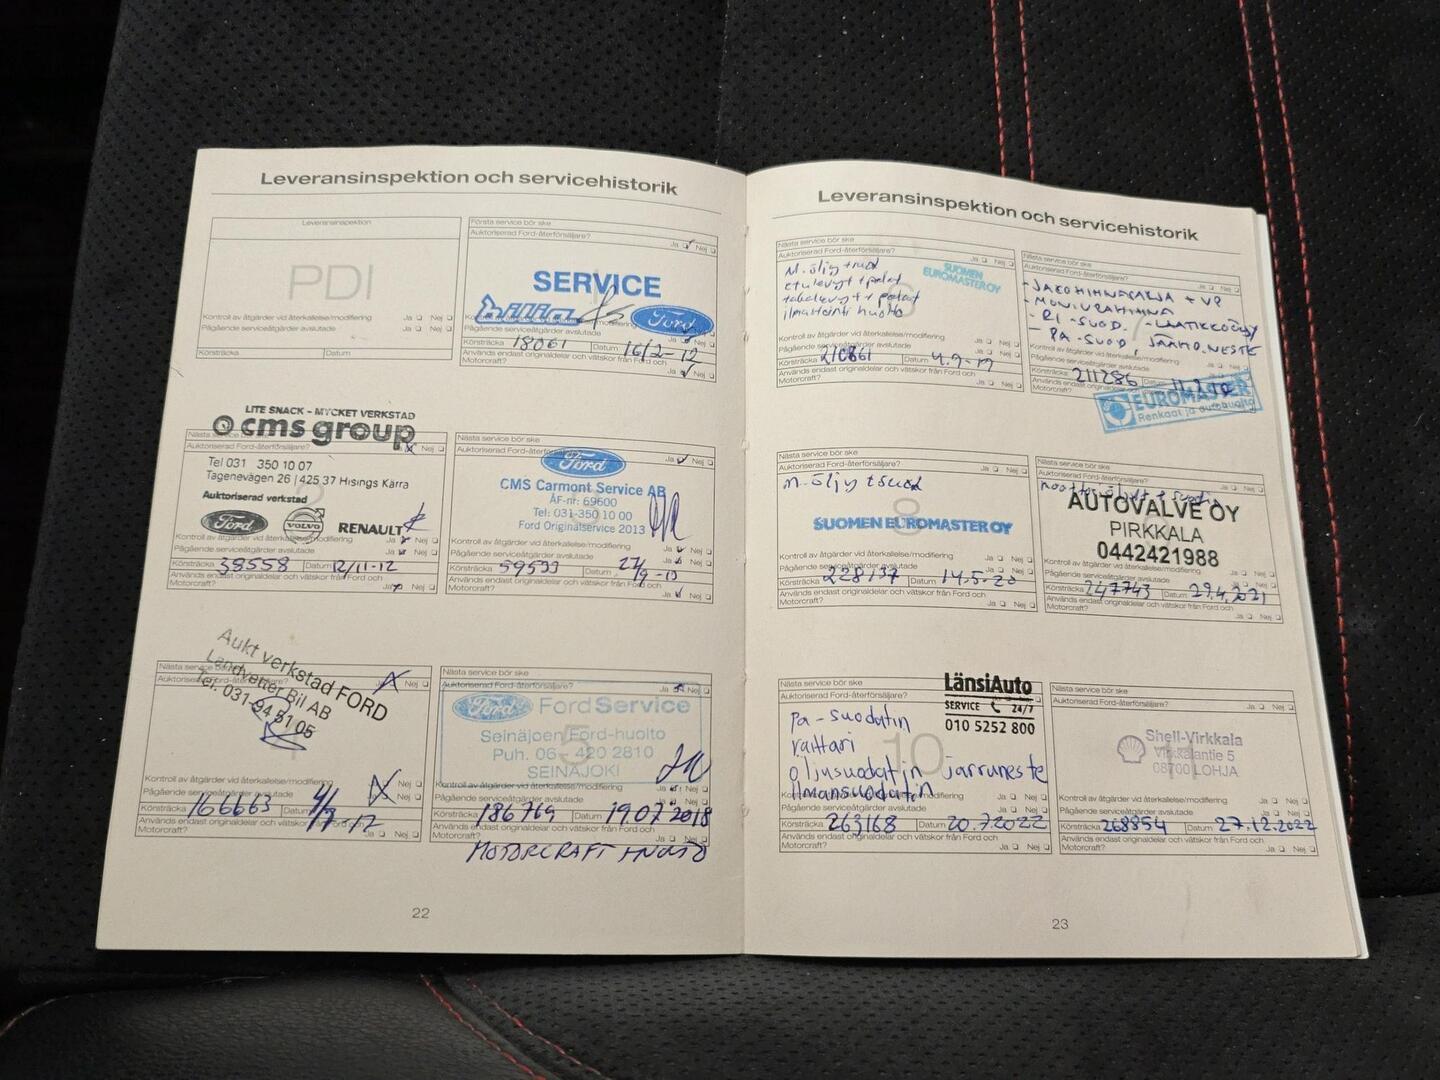 Leveransinspektion och servicehistorik
Leveransinspektion
PDI
Kontroll av åtgärder vid återkallelse/modifiering Ja Nej
Pågående serviceåtgärder avslutade Ja Nej
Körsträcka Datum
Första service bör ske
Auktoriserad Ford-återförsäljare? Ja Nej
SERVICE
bilia Ford
Körsträcka 18061 Datum 16/2-12
Används endast originaldelar och vätskor från Ford och
Motorcraft? Ja Nej
LITE SNACK - MYCKET VERKSTAD
cms group
Nästa service bör ske
Auktoriserad Ford-återförsäljare? Ja Nej
Tel 031 350 10 07
Tagenevägen 26 | 425 37 Hisings Kärra
Auktoriserad verkstad
Ford VOLVO RENAULT
Kontroll av åtgärder vid återkallelse/modifiering Ja Nej
Pågående serviceåtgärder avslutade Ja Nej
Körsträcka 38558 Datum 12/11-12
Används endast originaldelar och vätskor från Ford och
Motorcraft? Ja Nej
Nästa service bör ske
Auktoriserad Ford-återförsäljare? Ja Nej
Ford
CMS Carmont Service AB
ÅF-nr: 69600
Tel: 031-350 10 00
Ford Originalservice 2013
Kontroll av åtgärder vid återkallelse/modifiering Ja Nej
Pågående serviceåtgärder avslutade Ja Nej
Körsträcka Datum
Används endast originaldelar och vätskor från Ford och
Motorcraft? Ja Nej
Nästa service bör ske
Aukt verkstad FORD
Landvetter Bil AB
Tel. 031-94 51 05
Kontroll av åtgärder vid återkallelse/modifiering Ja Nej
Pågående serviceåtgärder avslutade Ja Nej
Körsträcka 166663 Datum
Används endast originaldelar och vätskor från Ford och
Motorcraft? Ja Nej
Nästa service bör ske
Auktoriserad Ford-återförsäljare? Ja Nej
Ford FordService
Seinäjoen Ford-huolto
Puh. 06 - 420 2810
SEINÄJOKI
5
Kontroll av åtgärder vid återkallelse/modifiering Ja Nej
Pågående serviceåtgärder avslutade Ja Nej
Körsträcka 186769 Datum 19.07 2018
Används endast originaldelar och vätskor från Ford och
Motorcraft? Ja Nej
MOTORCRAFT
22
Leveransinspektion och servicehistorik
Nästa service bör ske
Auktoriserad Ford-återförsäljare? Ja Nej
SUOMEN
EUROMASTER OY
ilmastointi huolto
Kontroll av åtgärder vid återkallelse/modifiering Ja Nej
Pågående serviceåtgärder avslutade Ja Nej
Körsträcka 210861 Datum 4.9-19
Används endast originaldelar och vätskor från Ford och
Motorcraft? Ja Nej
Nästa service bör ske
Auktoriserad Ford-återförsäljare? Ja Nej
- JAKOHIHNASARJA + VP
- MONIURAHIHNA
- RI-SUOD. - LAATIKKOÖLJY
- PA-SUOD, JÄÄHD.NESTE
Kontroll av åtgärder vid återkallelse/modifiering Ja Nej
Pågående serviceåtgärder avslutade Ja Nej
Körsträcka 211286 Datum
Används endast originaldelar
Motorcraft?
EUROMASTER
Renkaat ja autohuolto
Nästa service bör ske
Auktoriserad Ford-återförsäljare? Ja Nej
m. öljy + suod
8
SUOMEN EUROMASTER OY
Kontroll av åtgärder vid återkallelse/modifiering Ja Nej
Pågående serviceåtgärder avslutade Ja Nej
Körsträcka 228137 Datum 14.5-20
Används endast originaldelar och vätskor från Ford och
Motorcraft? Ja Nej
Nästa service bör ske
Auktoriserad Ford-återförsäljare? Ja Nej
AUTOVALVE OY
PIRKKALA
0442421988
Kontroll av åtgärder vid återkallelse/modifiering
Pågående serviceåtgärder avslutade Ja Nej
Körsträcka 247743 Datum 29.4.2021
Används endast originaldelar och vätskor från Ford och
Motorcraft? Ja Nej
Nästa service bör ske
Auktoriserad Ford-återförsäljare?
LänsiAuto
SERVICE 24/7
010 5252 800
10
Pa-suodatin
raittari
öljysuodatin jarruneste
ilmansuodatin
Kontroll av åtgärder vid återkallelse/modifiering Ja Nej
Pågående serviceåtgärder avslutade Ja Nej
Körsträcka 263168 Datum 20.7.2022
Används endast originaldelar och vätskor från Ford och
Motorcraft? Ja Nej
Nästa service bör ske
Auktoriserad Ford-återförsäljare? Ja Nej
11
Shell-Virkkala
Virkkalantie 5
08700 LOHJA
Kontroll av åtgärder vid återkallelse/modifiering Ja Nej
Pågående serviceåtgärder avslutade Ja Nej
Körsträcka 268954 Datum 27.12.2022
Används endast originaldelar och vätskor från Ford och
Motorcraft? Ja Nej
23